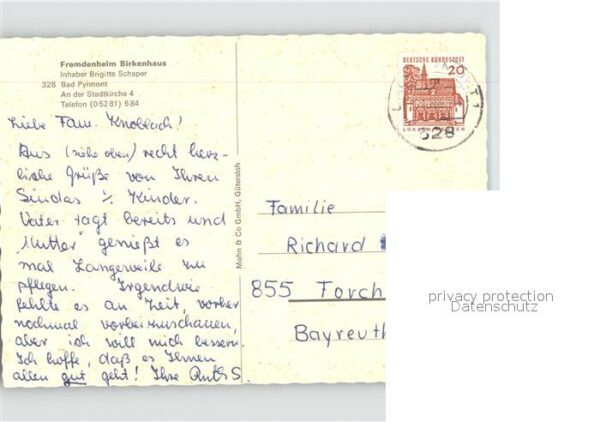 Fremdenheim Birkenhaus
Inhaber Brigitte Schaper
328 Bad Pyrmont
An der Stadtkirche 4
Telefon (0 52 81) 5 84
Liebe Fam. Knoblach!
Aus (siehe oben) recht herz-
liche Grüße von Ihren
Sindas ½ Kinder.
Vater tagt bereits und
"Mutter" genießt es
mal Langeweile zu
pflegen. Irgendwie
fehlte es an Zeit, vorher
nochmal vorbeizuschauen,
aber ich will mich bessern.
Ich hoffe, daß es Ihnen
allen gut geht! Ihre Ruth S.
Mohn & Co GmbH, Gütersloh
DEUTSCHE BUNDESPOST
20
328
Familie
Richard
855 Forch
Bayreuth
privacy protection
Datenschutz